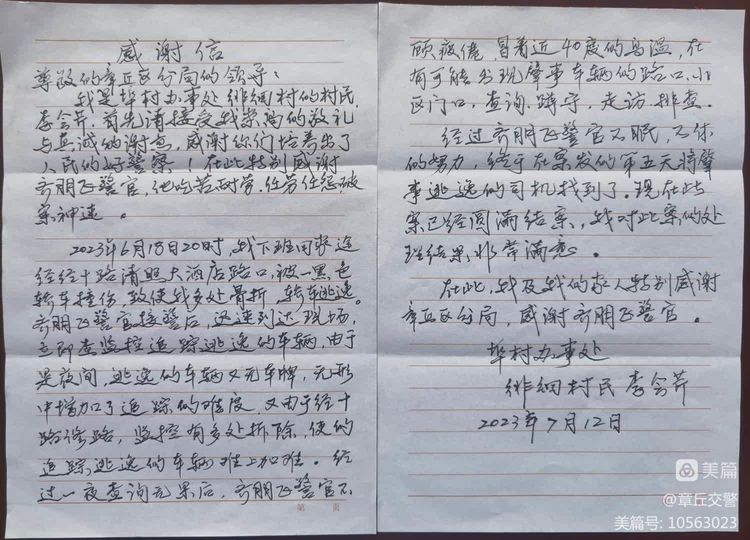 感谢信
尊敬的章丘区分局的领导：
我是埠村办事处绯细村的村民
李会芹。首先请接受我崇高的敬礼
与真诚的谢意，感谢你们培养出了
人民的好警察！在此特别感谢
齐朋飞警官，他吃苦耐劳，任劳任怨破
案神速。
2023年6月18日20时，我下班回家途
经经十路清照大酒店路口，被一黑色
轿车撞伤，致使我多处骨折，轿车逃逸。
齐朋飞警官接警后，迅速到达现场，
立即查监控追踪逃逸的车辆，由于
是夜间，逃逸的车辆又无车牌，无形
中增加了追踪的难度，又由于经十
路修路，监控有多处拆除，使的
追踪逃逸的车辆难上加难。经
过一夜查询无果后，齐朋飞警官不
第 页
顾疲倦，冒着近40度的高温，在
有可能出现肇事车辆的路口、小
区门口，查询、蹲守，走访、排查。
经过齐朋飞警官不眠、不休
的努力，终于在案发的第五天将肇
事逃逸的司机找到了。现在此
案已经圆满结案，我对此案的处
理结果非常满意。
在此，我及我的家人特别感谢
章丘区分局，感谢齐朋飞警官。
埠村办事处
绯细村民 李会芹
2023年7月12日
美篇
@章丘交警
美篇号: 10563023